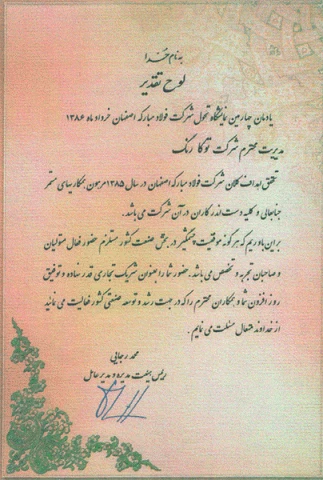 به نام خدا
لوح تقدیر
یادمان چهارمین نمایشگاه تحول شرکت فولاد مبارکه اصفهان خرداد ماه ۱۳۸۶
مدیریت محترم شرکت توکا رنگ
تحقق اهداف کلان شرکت فولاد مبارکه اصفهان در سال ۱۳۸۵ مرهون همکاریهای مستمر
جنابعالی و کلیه دست اندرکاران در آن شرکت می باشد.
براین باوریم که هرگونه موفقیت چشمگیر در بخش صنعت کشور مستلزم حضور فعال متولیان
و صاحبان تجربه و تخصص می باشد. حضور شما را بعنوان شریک تجاری قدر نهاده و توفیق
روز افزون شما و همکاران محترم را که در جهت رشد و توسعه صنعتی کشور فعالیت می نمایند
از خداوند متعال مسئلت می نمایم.
محمد رجایی
رییس هیئت مدیره و مدیرعامل